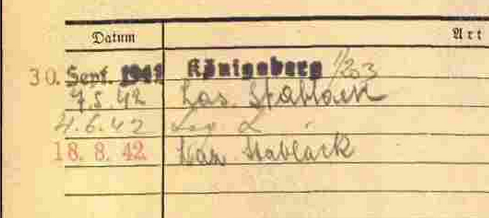 Datum Art
30. Sept. 1941 Königsberg 1/203
7.5.42 Laz. Stablack
4.6.42
18. 8. 42. Laz. Stablack